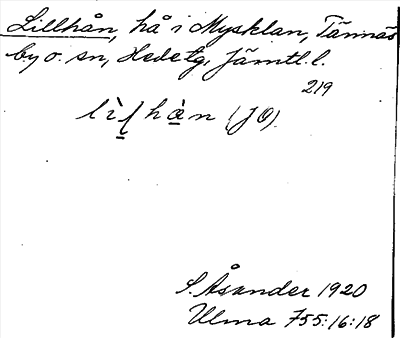 Lillhån, hå i Mysklan, Tännäs
by o. sn, Hede tg, Jämtl. l.
219
lìlhàn (JÖ).
S. Åsander 1920
Ulma 755:16:18